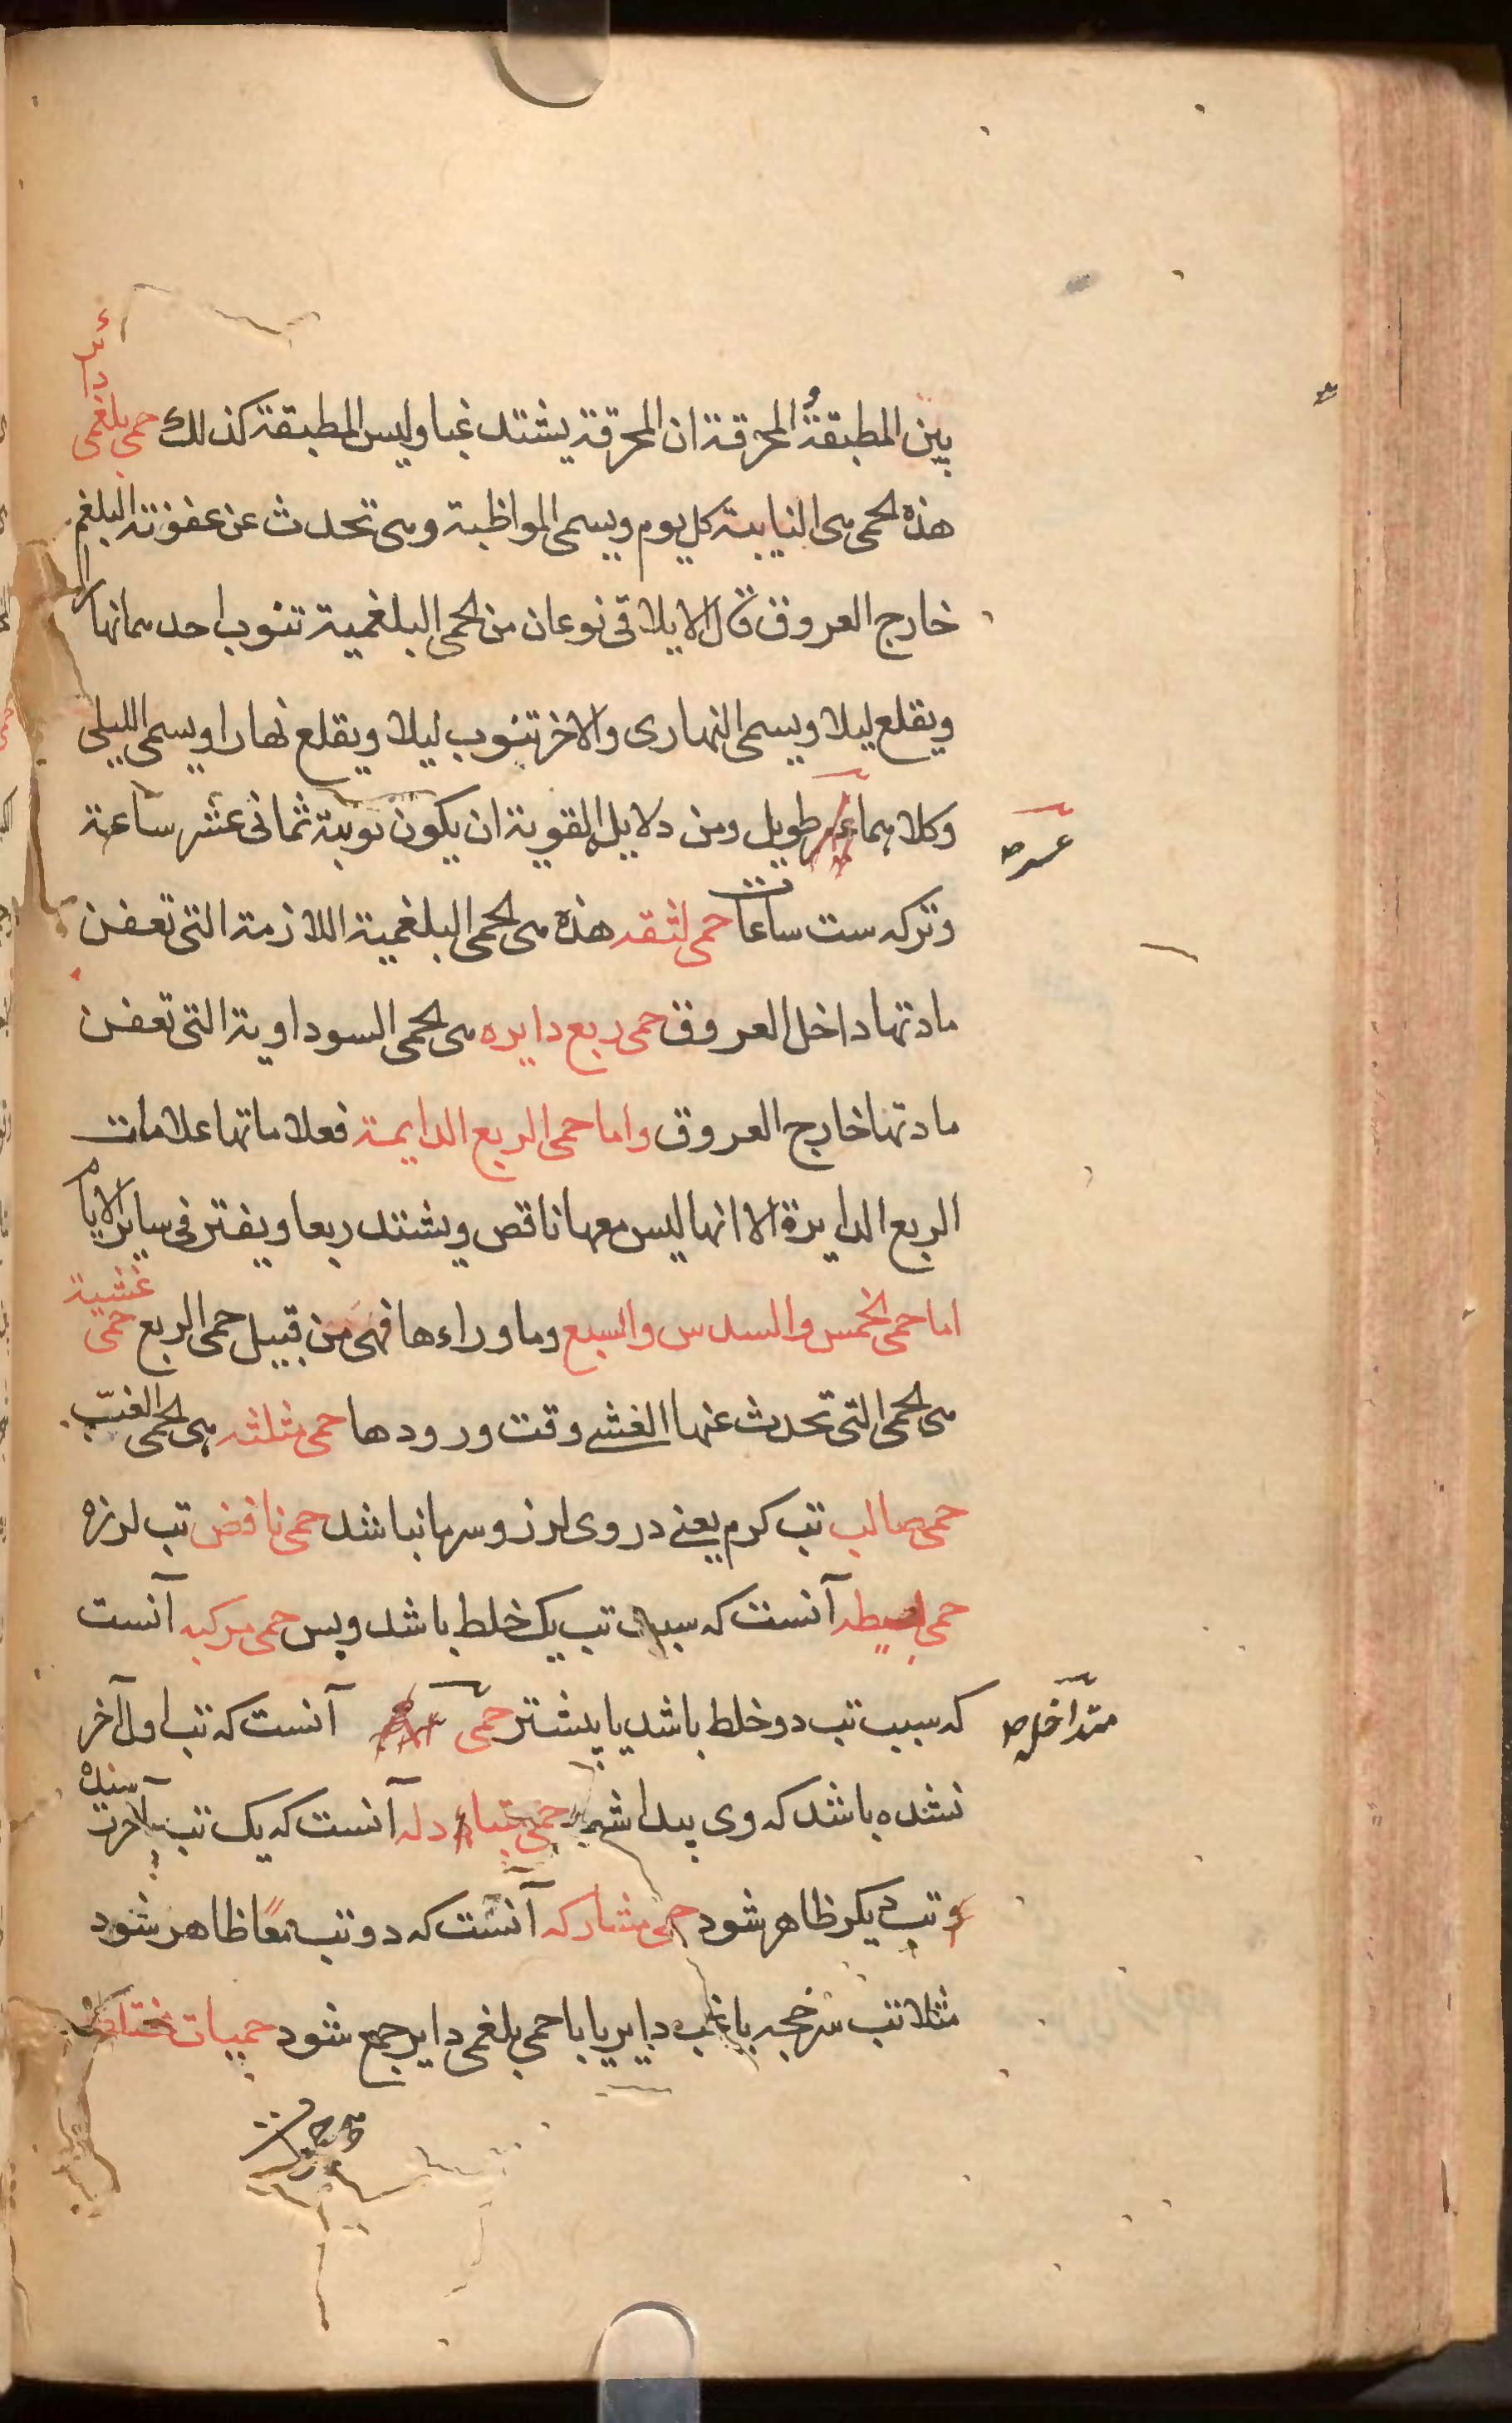 بین المطبقة و المحرقة ان المحرقة یشتد غبا ولیس المطبقة کذلک حمی بلغمی دایر
هذه الحمی هی النایبة کل یوم ویسمی المواظبة وهی تحدث عن عفونة البلغم
خارج العروق قال الایلاقی نوعان من الحمی البلغمیة تنوب احدیهما نهارا
ویقلع لیلا ویسمی النهاری والاخر تنوب لیلا ویقلع نهارا ویسمی اللیلی
وکلاهما طویل ومن دلایل القویة ان یکون نوبته ثمانی عشر ساعة
عسر ص
وترکه ست ساعات حمی لثقه هذه هی الحمی البلغمیة اللازمة التی تعفن
مادتها داخل العروق حمی ربع دایره هی الحمی السوداویة التی تعفن
مادتها خارج العروق واما حمی الربع الدایمة فعلاماتها علامات
الربع الدایرة الا انها لیس معها ناقص ویشتد ربعا ویفتر فی سایر الایام
اما حمی الخمس والسدس والسبع وما وراءها فهی من قبیل حمی الربع حمی غشیة
هی الحمی التی تحدث عنها الغشی وقت ورودها حمی مثلثه هی الحمی الغب
حمی صالب تب کرم یعنی در وی لرز و سرما نباشد حمی نافض تب لرزه
حمی بسیطه آنست که سبب تب یک خلط باشد وبس حمی مرکبه آنست
که سبب تب دو خلط باشد یا بیشتر حمی آنست که تب اول آخر
متداخل ص
نشده باشد که وی پیدا شود حمی متبادله آنست که یک تب بآخر رسیده
و تب دیکر ظاهر شود حمی مشارکه آنست که دو تب معًا ظاهر شود
مثلا تب سرخجه با غب دایر یا با حمی بلغمی دایر جمع شود حمیات مختلطه